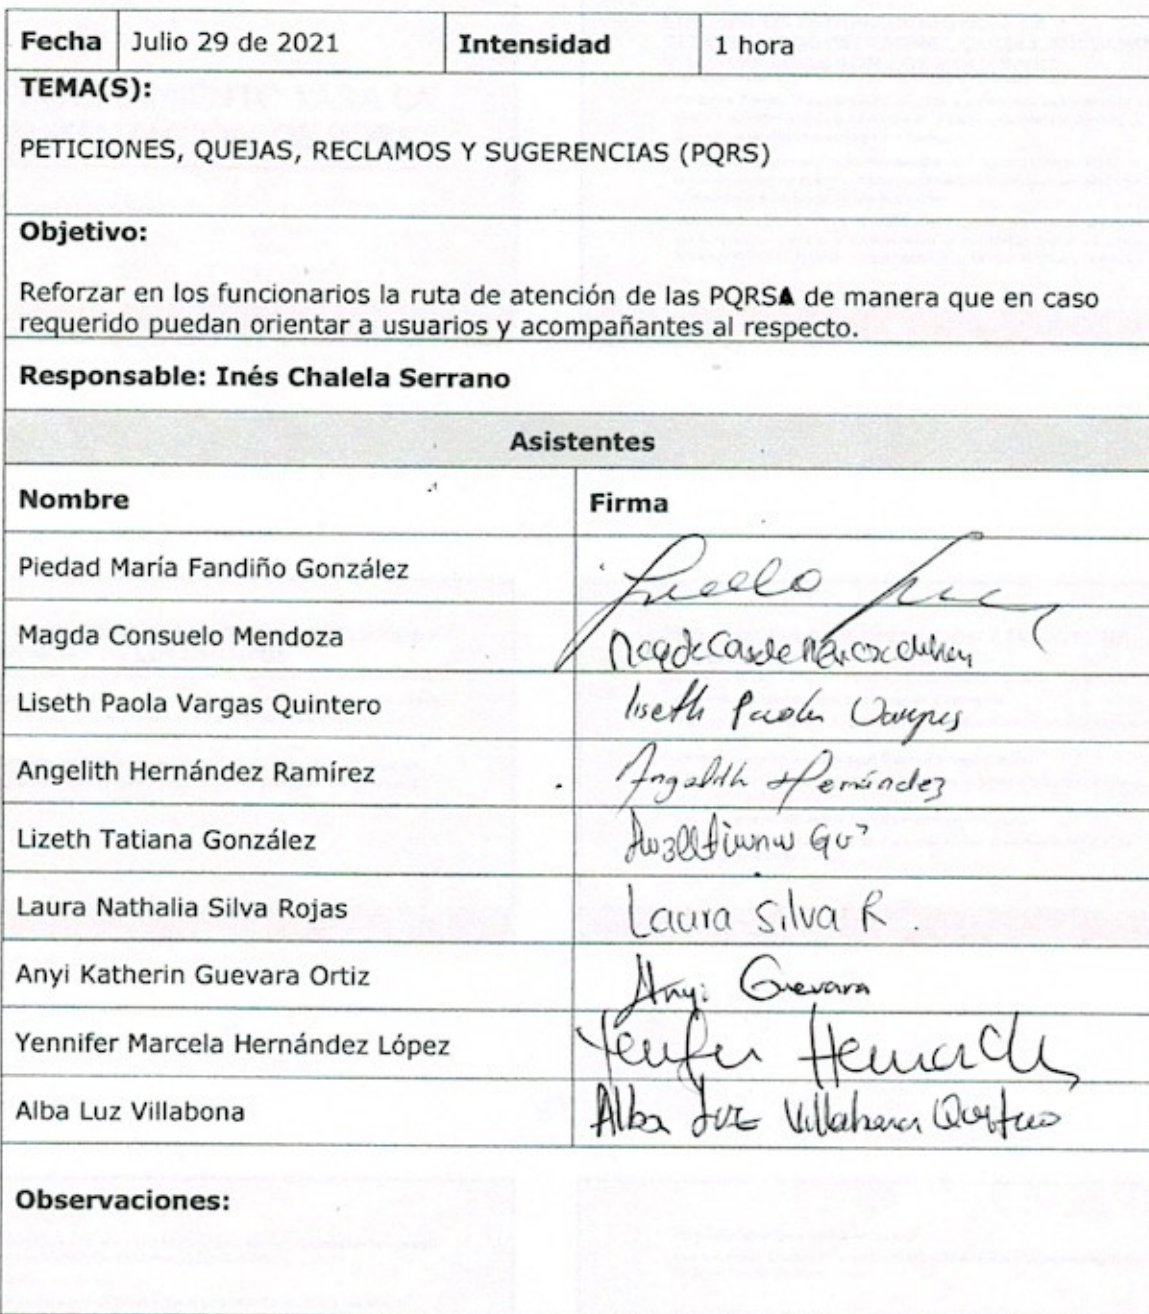 Fecha Julio 29 de 2021 Intensidad 1 hora
TEMA(S):
PETICIONES, QUEJAS, RECLAMOS Y SUGERENCIAS (PQRS)
Objetivo:
Reforzar en los funcionarios la ruta de atención de las PQRSA de manera que en caso
requerido puedan orientar a usuarios y acompañantes al respecto.
Responsable: Inés Chalela Serrano
Asistentes
Nombre Firma
Piedad María Fandiño González
Magda Consuelo Mendoza
Liseth Paola Vargas Quintero liseth Paola Vargas
Angelith Hernández Ramírez Angelith Hernández
Lizeth Tatiana González
Laura Nathalia Silva Rojas Laura Silva R.
Anyi Katherin Guevara Ortiz Anyi Guevara
Yennifer Marcela Hernández López
Alba Luz Villabona Alba Luz Villabona
Observaciones: